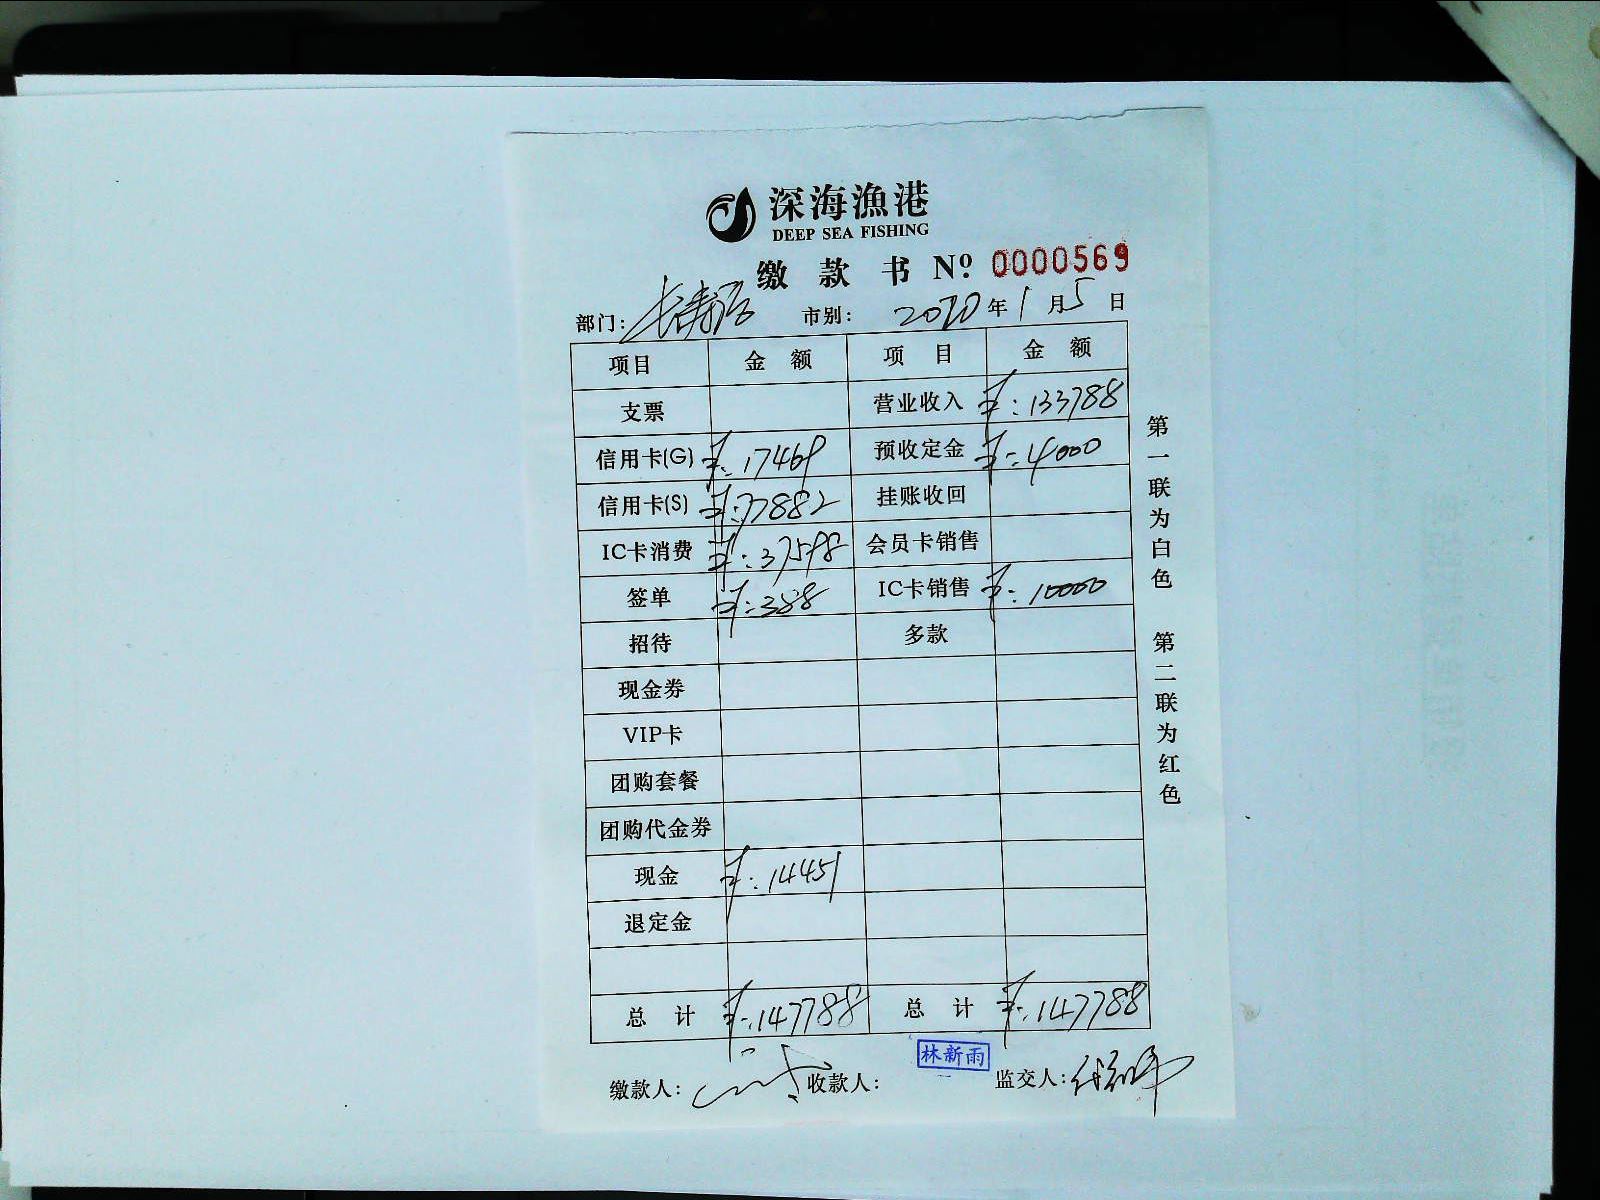 深海渔港
DEEP SEA FISHING
缴款书 Nº 0000569
部门: 市别: 2020年1月5日
项目 金额 项目 金额
支票 营业收入 ¥:133788
信用卡(G) ¥:17469 预收定金 ¥:4000
信用卡(S) ¥:77882 挂账收回
IC卡消费 ¥:37598 会员卡销售
签单 ¥:388 IC卡销售 ¥:10000
招待 多款
现金券
VIP卡
团购套餐
团购代金券
现金 ¥:14451
退定金
总计 ¥:147788 总计 ¥:147788
缴款人: 收款人: 林新雨 监交人:
第一联为白色 第二联为红色